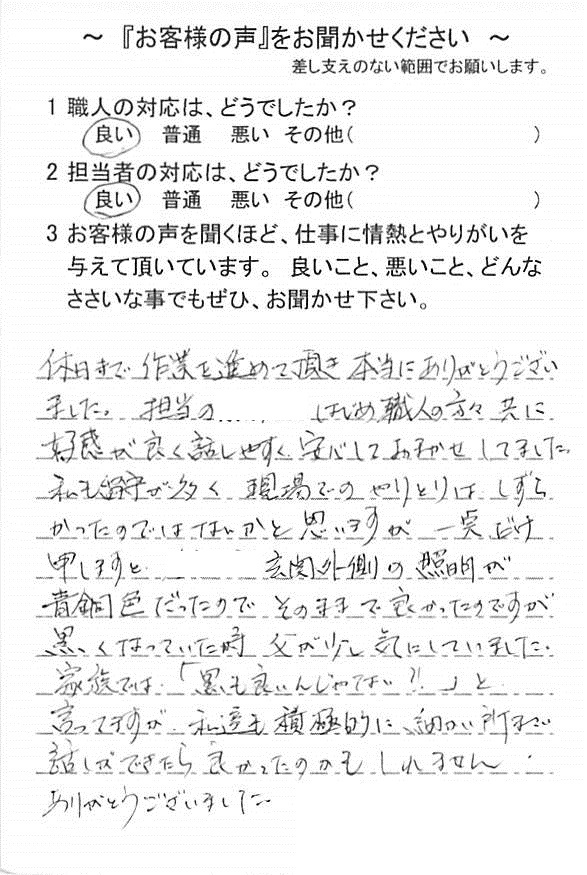 ～ 『お客様の声』をお聞かせください ～
差し支えのない範囲でお願いします。
1 職人の対応は、どうでしたか？
良い 普通 悪い その他( )
2 担当者の対応は、どうでしたか？
良い 普通 悪い その他( )
3 お客様の声を聞くほど、仕事に情熱とやりがいを
与えて頂いています。 良いこと、悪いこと、どんな
ささいな事でもぜひ、お聞かせ下さい。
休日まで 作業を進めて頂き 本当にありがとうござい
ました。 担当の はじめ 職人の方々 共に
好感が良く話しやすく、安心しておまかせしてました。
私も留守が多く 現場でのやりとりは しずら
かったのではないかと思いますが 一実だけ
申しますと 玄関外側の照明が
青銅色だったので そのままで良かったのですが
黒くなっていた時 父が少し気にしていました。
家族では「黒も良いんじゃない?!」と
言ってますが、私達も積極的に、細かい所まで
話しができたら良かったのかもしれません。
ありがとうございました。